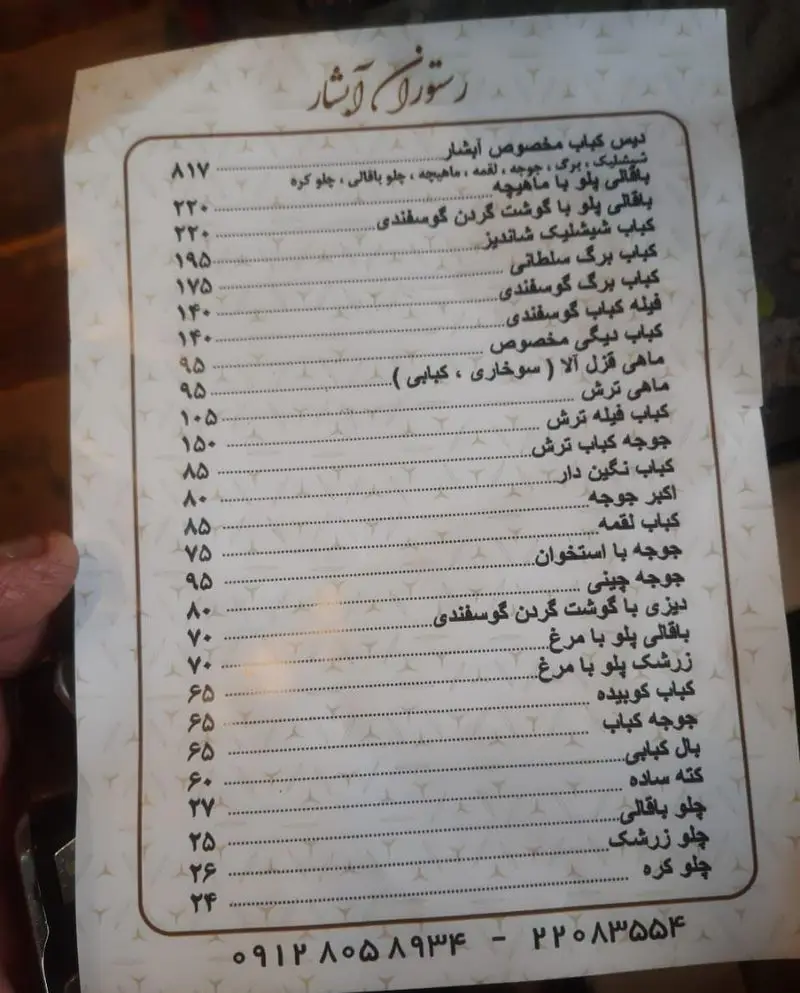 رستوران آبشار
دیس کباب مخصوص آبشار ........ ۸۱۷
شیشلیک ، برگ ، جوجه ، لقمه ، ماهیچه ، چلو باقالی ، چلو کره
باقالی پلو با ماهیچه ........ ۲۲۰
باقالی پلو با گوشت گردن گوسفندی ........ ۲۲۰
کباب شیشلیک شاندیز ........ ۱۹۵
کباب برگ سلطانی ........ ۱۷۵
کباب برگ گوسفندی ........ ۱۴۰
فیله کباب گوسفندی ........ ۱۴۰
کباب دیگی مخصوص ........ ۹۵
ماهی قزل آلا ( سوخاری ، کبابی ) ........ ۹۵
ماهی ترش ........ ۱۰۵
کباب فیله ترش ........ ۱۵۰
جوجه کباب ترش ........ ۸۵
کباب نگین دار ........ ۸۰
اکبر جوجه ........ ۸۵
کباب لقمه ........ ۷۵
جوجه با استخوان ........ ۹۵
جوجه چینی ........ ۸۰
دیزی با گوشت گردن گوسفندی ........ ۷۰
باقالی پلو با مرغ ........ ۷۰
زرشک پلو با مرغ ........ ۶۵
کباب کوبیده ........ ۶۵
جوجه کباب ........ ۶۵
بال کبابی ........ ۶۰
کته ساده ........ ۲۷
چلو باقالی ........ ۲۵
چلو زرشک ........ ۲۶
چلو کره ........ ۲۴
۰۹۱۲ ۸۰۵ ۸۹۳۴ - ۲۲۰۸۳۵۵۴